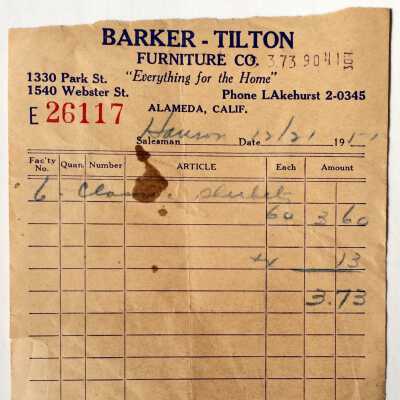 BARKER - TILTON
FURNITURE CO. 3.73 9041
1330 Park St. "Everything for the Home"
1540 Webster St. Phone LAkehurst 2-0345
E 26117 ALAMEDA, CALIF.
Hanson 12/21 1951
Salesman Date
Fac'ty No. Quan. Number ARTICLE Each Amount
6 Sherbets
60 3 60
tx 13
3.73